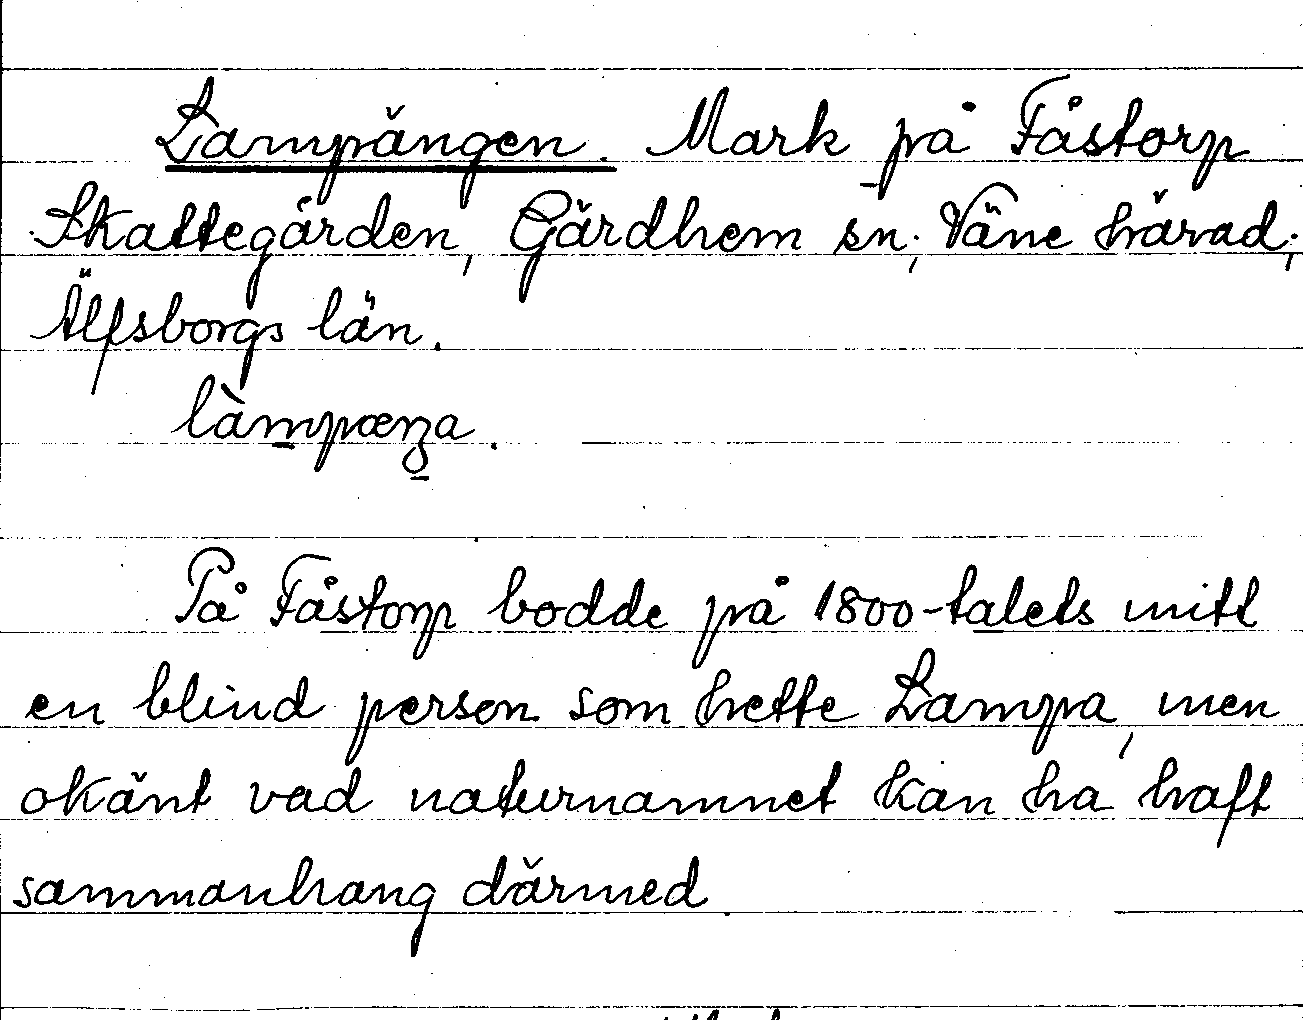 Lampängen. Mark på Fåstorp
Skattegården, Gärdhem sn; Väne härad;
Älfsborgs län.
làmpæŋa.
På Fåstorp bodde på 1800-talets mitt
en blind person som hette Lampa, men
okänt vad naturnamnet kan ha haft
sammanhang därmed.